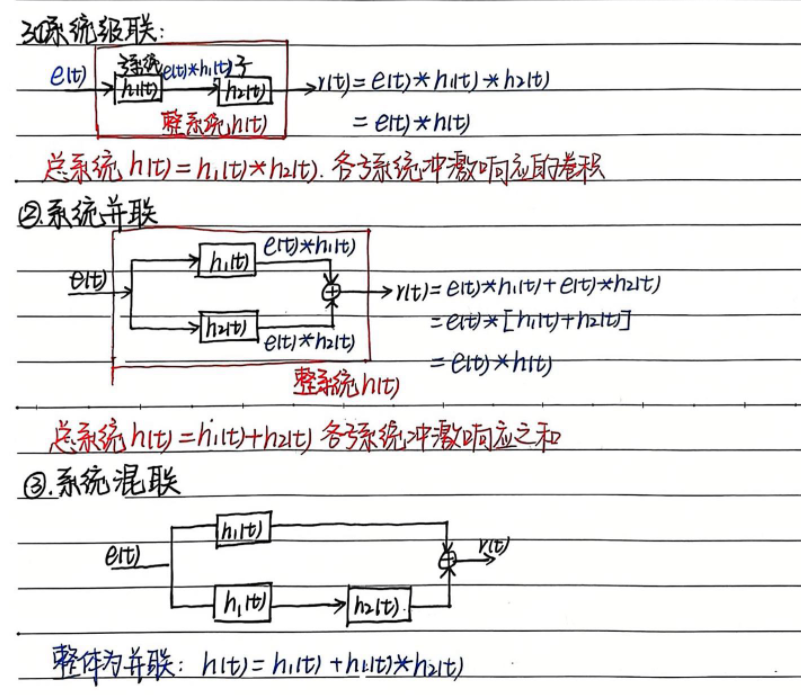 3①系统级联:
e(t) 子系统 h₁(t) e(t)*h₁(t) 子 h₂(t) r(t)=e(t)*h₁(t)*h₂(t)
整系统h(t) =e(t)*h(t)
总系统h(t)=h₁(t)*h₂(t).各子系统冲激响应的卷积
②.系统并联
h₁(t) e(t)*h₁(t)
e(t) + r(t)=e(t)*h₁(t)+e(t)*h₂(t)
h₂(t) e(t)*h₂(t) =e(t)*[h₁(t)+h₂(t)]
=e(t)*h(t)
整系统h(t)
总系统h(t)=h₁(t)+h₂(t) 各子系统冲激响应之和
③.系统混联
h₁(t)
e(t) + r(t)
h₁(t) h₂(t)
整体为并联: h(t)=h₁(t)+h₁(t)*h₂(t)